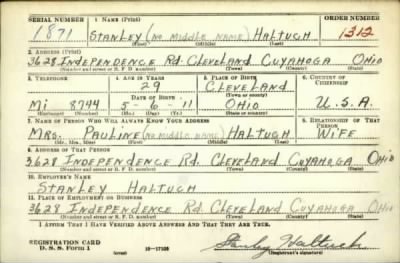 SERIAL NUMBER 1. NAME (Print) ORDER NUMBER
1871 STANLEY (NO MIDDLE NAME) HALTUCH 1312
(First) (Middle) (Last)
2. ADDRESS (Print)
3628 INDEPENDENCE RD. CLEVELAND CUYAHOGA OHIO
(Number and street or R. F. D. number) (Town) (County) (State)
3. TELEPHONE 4. AGE IN YEARS 5. PLACE OF BIRTH 6. COUNTRY OF CITIZENSHIP
29 CLEVELAND
DATE OF BIRTH (Town or county)
MI 8744 5-6-11 OHIO U.S.A.
(Exchange) (Number) (Mo.) (Day) (Yr.) (State or country)
7. NAME OF PERSON WHO WILL ALWAYS KNOW YOUR ADDRESS 8. RELATIONSHIP OF THAT PERSON
MRS. PAULINE (NO MIDDLE NAME) HALTUCH WIFE
(Mr., Mrs., Miss) (First) (Middle) (Last)
9. ADDRESS OF THAT PERSON
3628 INDEPENDENCE RD. CLEVELAND CUYAHOGA OHIO
(Number and street or R. F. D. number) (Town) (County) (State)
10. EMPLOYER'S NAME
STANLEY HALTUCH
11. PLACE OF EMPLOYMENT OR BUSINESS
3628 INDEPENDENCE RD. CLEVELAND CUYAHOGA OHIO
(Number and street or R. F. D. number) (Town) (County) (State)
I AFFIRM THAT I HAVE VERIFIED ABOVE ANSWERS AND THAT THEY ARE TRUE.
REGISTRATION CARD
D. S. S. Form 1 (over) 16-17105 Stanley Haltuch
(Registrant's signature)